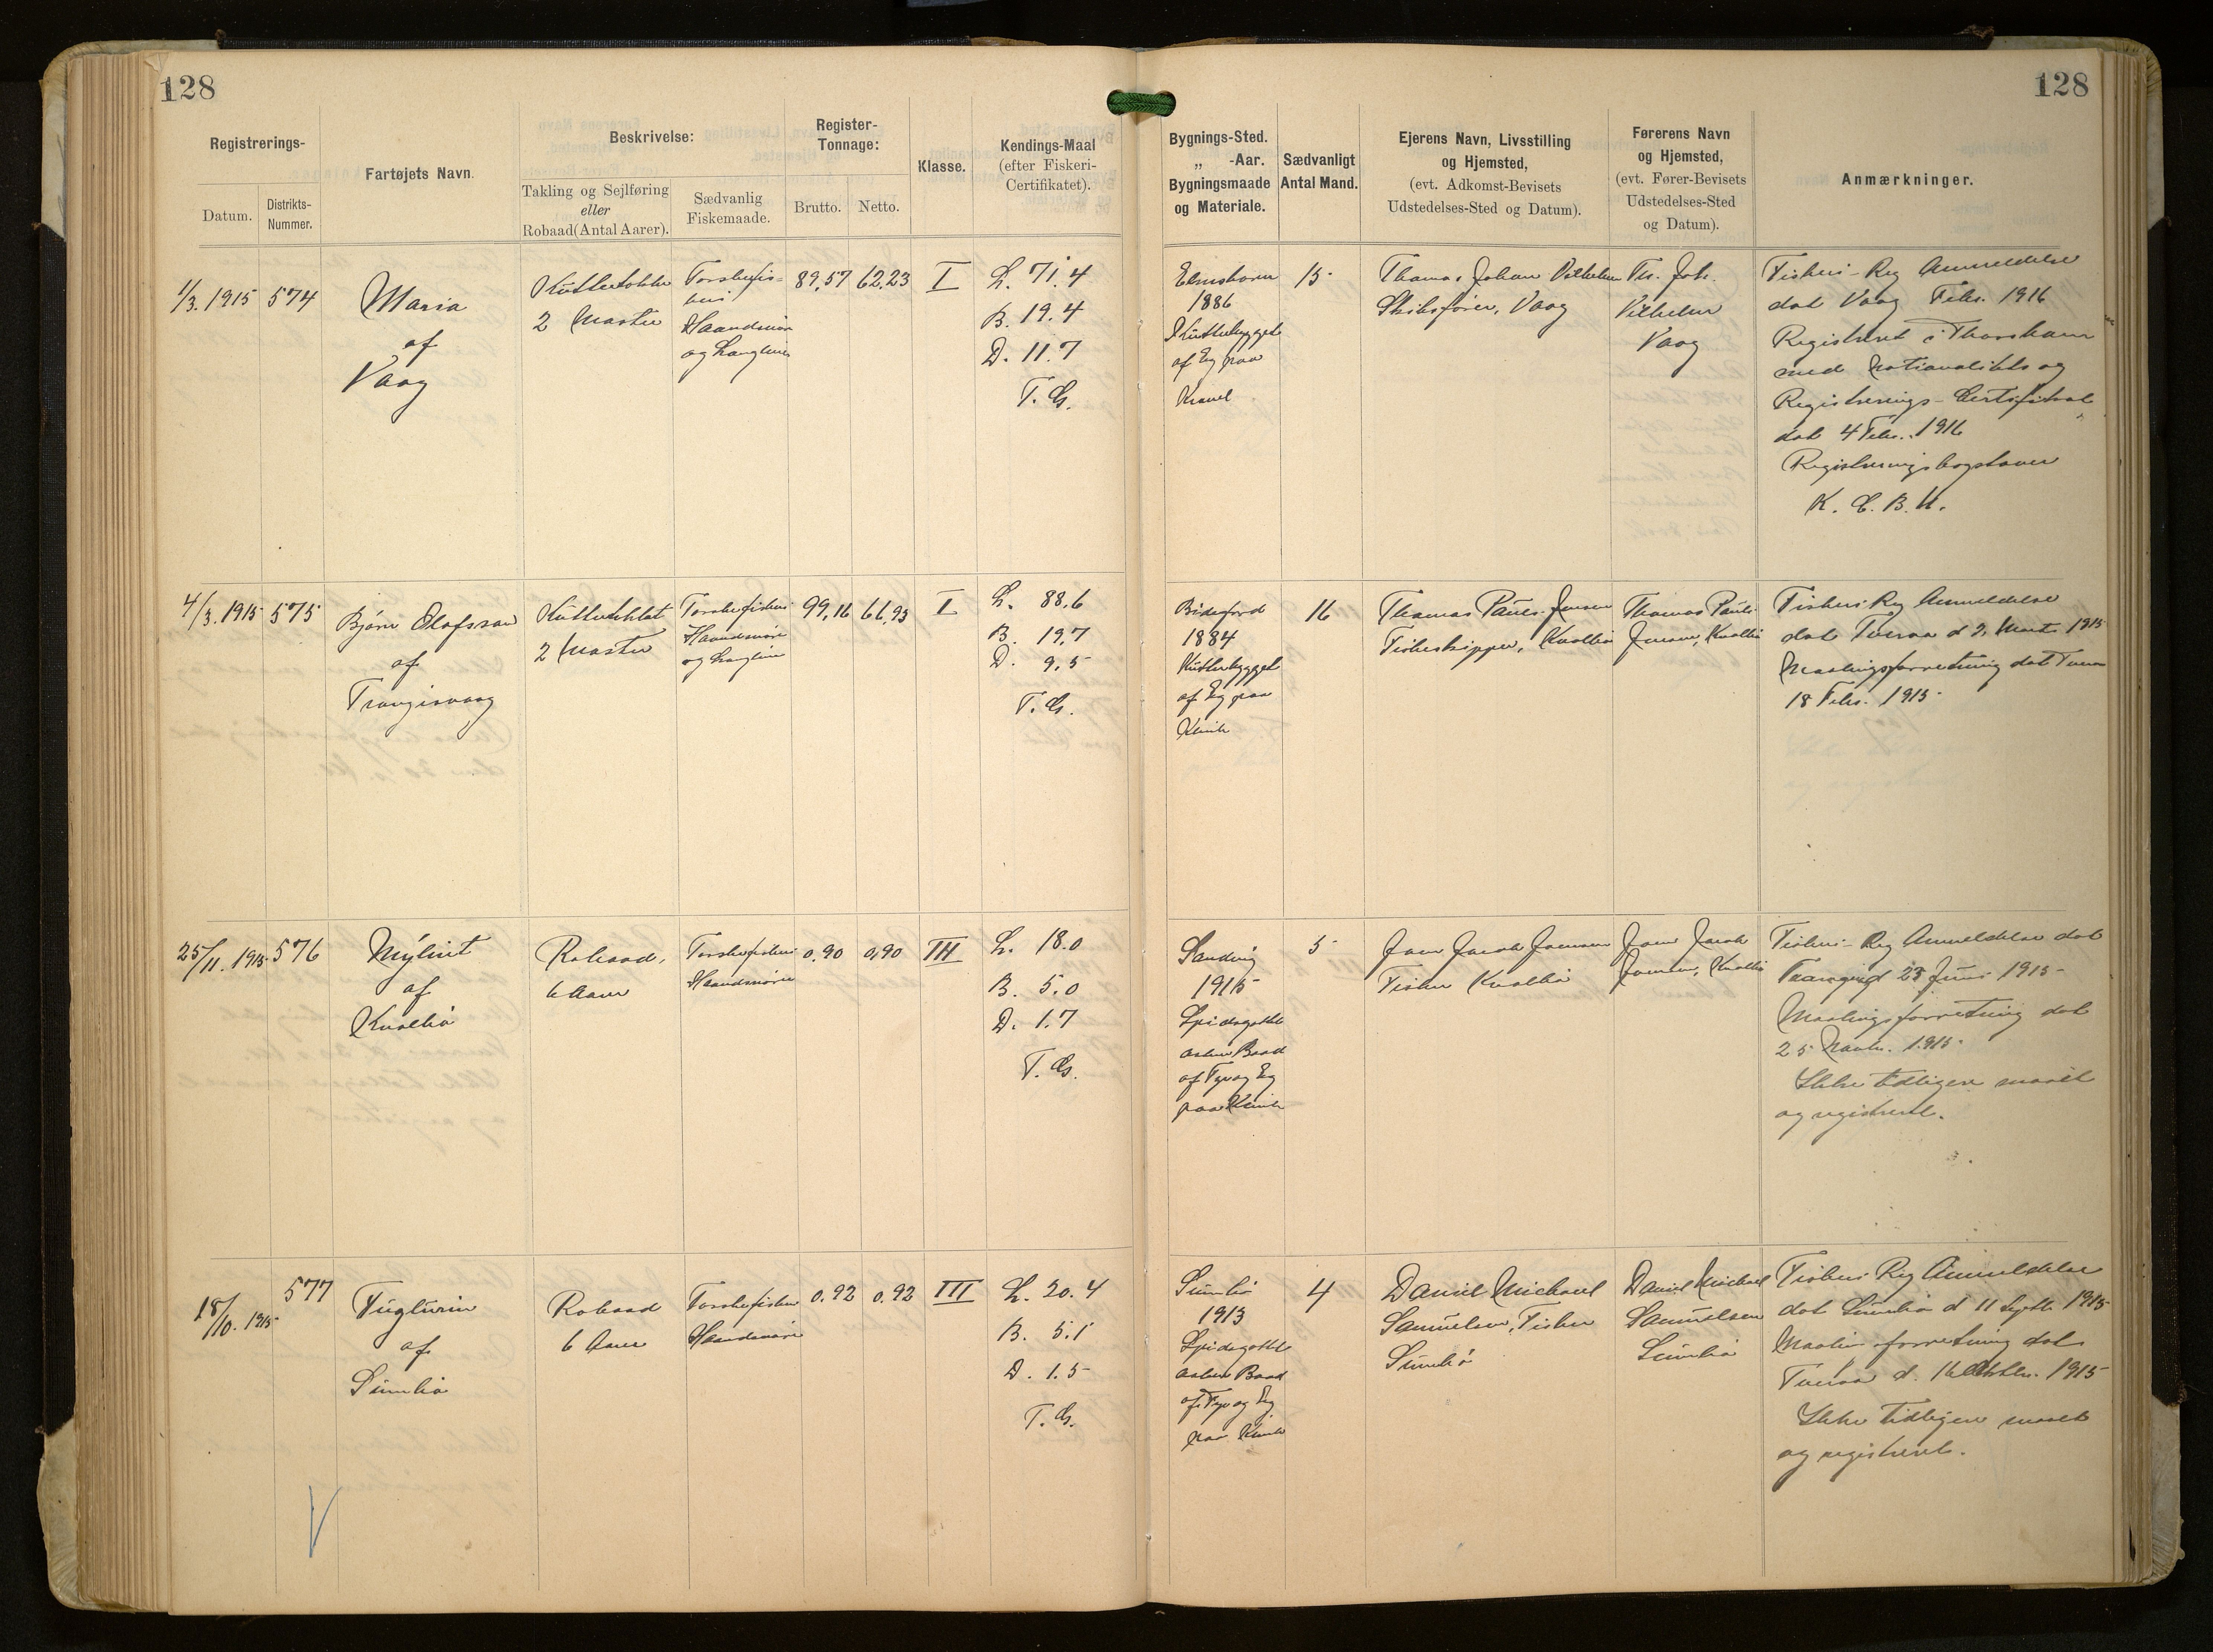 128
128
Registrerings-
Datum.
Distrikts-
Nummer.
Fartøjets Navn.
Beskrivelse:
Takling og Sejlføring
eller
Robaad (Antal Aarer).
Sædvanlig
Fiskemaade.
Register-
Tonnage:
Brutto.
Netto.
Klasse.
Kendings-Maal
(efter Fiskeri-
Certifikatet).
Bygnings-Sted.
„ -Aar.
Bygningsmaade
og Materiale.
Sædvanligt
Antal Mand.
Ejerens Navn, Livsstilling
og Hjemsted,
(evt. Adkomst-Bevisets
Udstedelses-Sted og Datum).
Førerens Navn
og Hjemsted,
(evt. Fører-Bevisets
Udstedelses-Sted
og Datum).
Anmærkninger.
1/3. 1915
574
Maria
af
Vaag
2 Master
Torskefis-
keri
Haandsnøre
og Langline
89,57
62,23
I
L. 71.4
B. 19.4
D. 11.7
T. G.
Elmshorn
1886
Kutterbygget
af Eg paa
Kravel
15
Thomas Johan Vilhelm
Skibsfører, Vaag
Th. Joh.
Vilhelm
Vaag
Fiskeri-Reg Anmeldelse
dat Vaag Febr. 1916
Registreret i Thorshavn
med Nationalitets og
Registrerings-Certifikat
dat 4 Febr. 1916
Registreringsbogstaver
4/3. 1915
575
Bjørn Olafsson
af
Trangisvaag
2 Master
Torskefiskeri
Haandsnøre
og Langline
99,16
66,93
I
L. 88.6
B. 19,7
D. 9,5
T. G.
Bideford
1884
Kutterbygget
af Eg paa
Klink
16
Thomas Pauli Jensen
Fiskeskipper, Kvalbø
Thomas Pauli
Jensen, Kvalbø
Fiskeri Reg Anmeldelse
dat Tveraa d 2. Marts 1915
Maalingsforretning dat Tveraa
18 Febr. 1915
25/11. 1915
576
Mýlint
af
Kvalbø
Robaad,
6 Aarer
Torskefiskeri
Haandsnøre
0,90
0,90
III
L. 18.0
B. 5.0
D. 1.7
T. G.
Sandvig
1915
Spidsgattet
aaben Baad
af Fyr og Eg
paa Klink
5
Joen Jacob Joensen
Fisker Kvalbø
Joen Jacob
Joensen, Kvalbø
Fiskeri-Reg Anmeldelse dat
23 Juni 1915
Maalingsforretning dat
25 Novbr. 1915
Ikke tidligere maalt
og registreret.
18/10. 1915
577
Fuglurin
af
Sumbø
Robaad
6 Aarer
Torskefiskeri
Haandsnøre
0.92
0.92
III
L. 20.4
B. 5.1
D. 1.5
T. G.
Sumbø
1913
Spidsgattet
aaben Baad
af Fyr og Eg
paa Klink
4
Daniel Michael
Samuelsen, Fisker
Sumbø
Daniel Michael
Samuelsen
Sumbø
Fiskeri Reg Anmeldelse
dat Sumbø d 11 Septb. 1915
Maalingsforretning dat
Tveraa d. 16 Oktbr. 1915
Ikke tidligere maalt
og registreret.